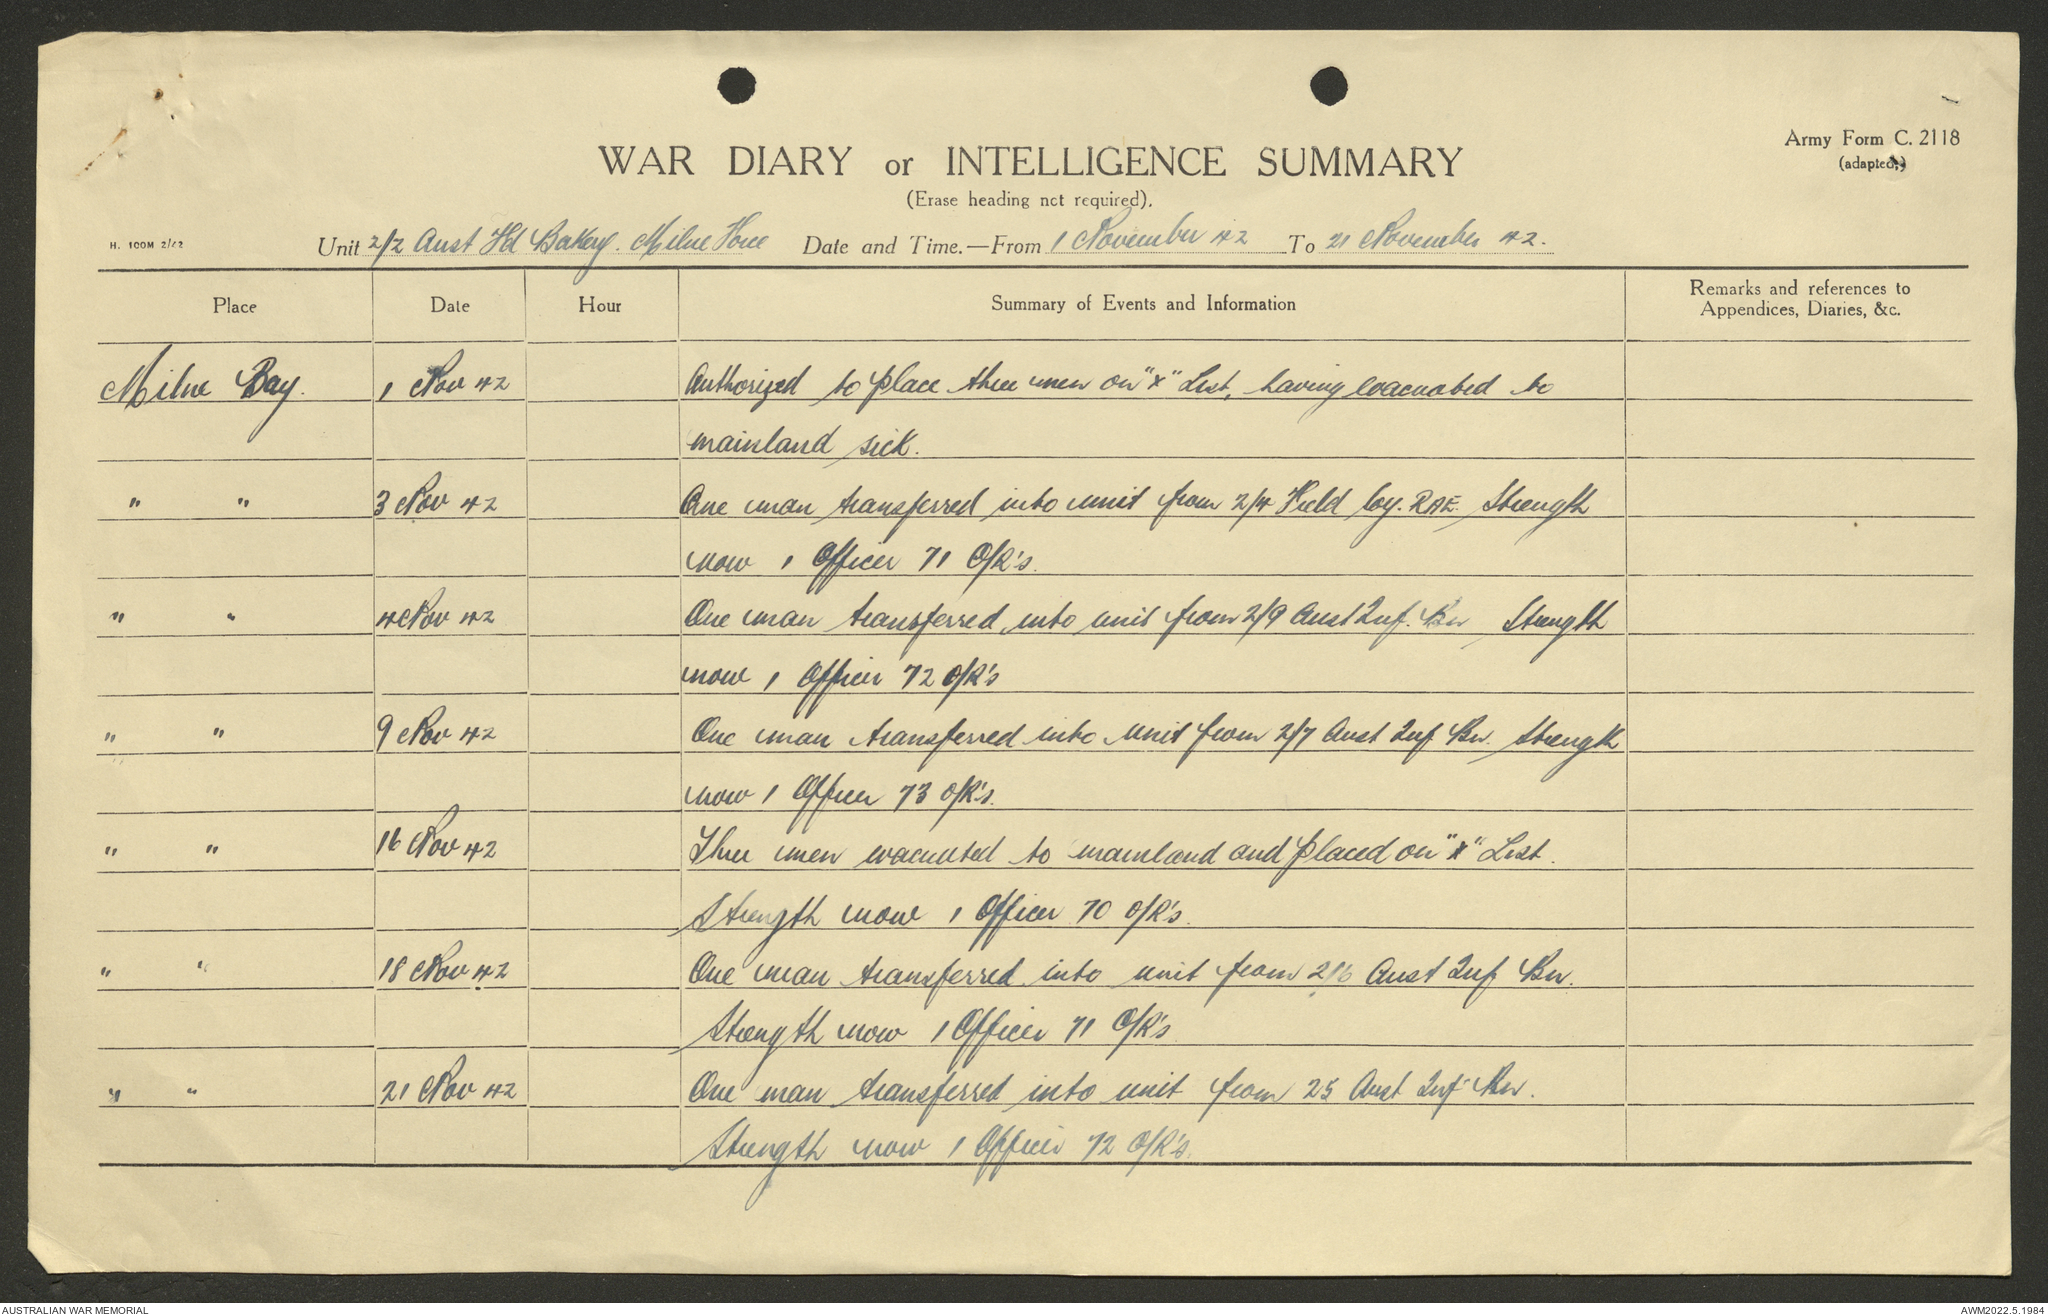 Army Form C. 2118
(adapted.)
WAR DIARY or INTELLIGENCE SUMMARY
(Erase heading not required).
H. 100M 2/42
Unit 2/2 Aust Fd Bakery. Milne Force Date and Time.—From 1 November 42 To 21 November 42.
Place Date Hour Summary of Events and Information Remarks and references to
Appendices, Diaries, &c.
Milne Bay. 1 Nov 42 Authorized to place three men on "X" List, having evacuated to
mainland sick.
" " 3 Nov 42 One man transferred into unit from 2/4 Field Coy. RAE. Strength
now 1 Officer 71 O/R's.
" " 4 Nov 42 One man transferred into unit from 2/9 Aust Inf. Bn Strength
now 1 Officer 72 O/R's
" " 9 Nov 42 One man transferred into unit from 2/7 Aust Inf Bn. Strength
now 1 Officer 73 O/R's.
" " 16 Nov 42 Three men evacuated to mainland and placed on "X" List.
Strength now 1 Officer 70 O/R's.
" " 18 Nov 42 One man transferred into unit from Aust Inf Bn.
Strength now 1 Officer 71 O/R's
" " 21 Nov 42 One man transferred into unit from 25 Aust Inf Bn.
Strength now 1 Officer 72 O/R's.
AUSTRALIAN WAR MEMORIAL AWM2022.5.1984